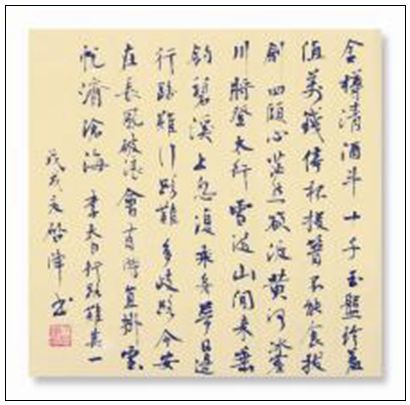 金樽清酒斗十千玉盤珍羞
值萬錢停杯投箸不能食拔
劍四顧心茫然欲渡黃河冰塞
川將登太行雪滿山閒來垂
釣碧溪上忽復乘舟夢日邊
行路難行路難多歧路今安
在長風破浪會有時直掛雲
帆濟滄海李太白行路難其一
戊戌啓書